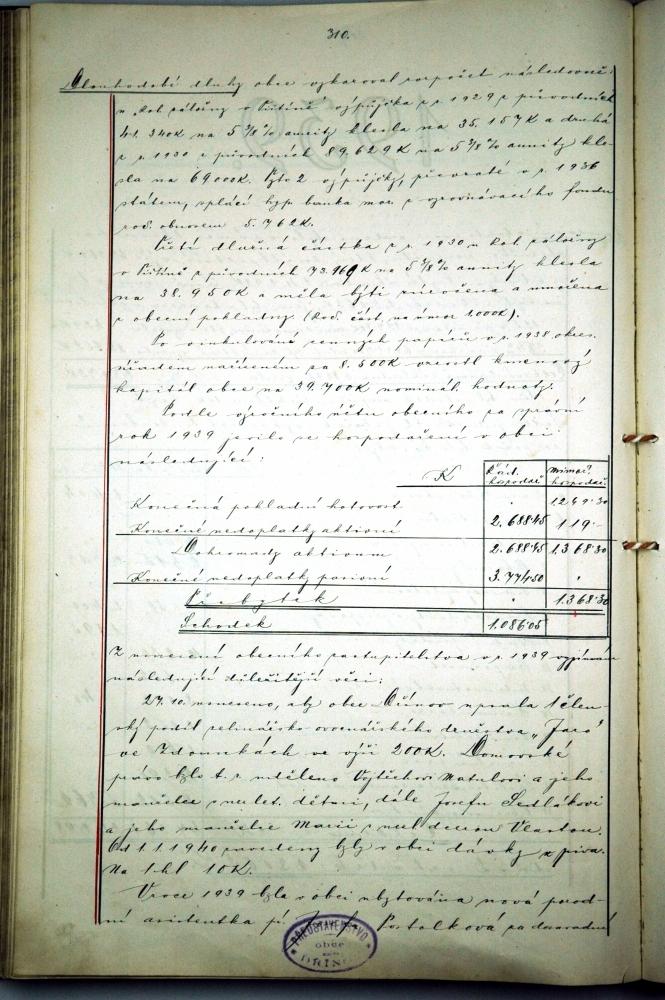 310.
Dlouhodobé dluhy obce vykazoval rozpočet následovně:
u kol záložny v výpůjčka z r. 1929 z původních
41.340K na 5 7/8% annity klesla na 35.157K a druhá
z r. 1930 z původních 89.629K na 5 7/8% annity kle-
sla na 69.000K. Tyto 2 výpůjčky, převzaté v r. 1936
státem, splácí hyp. banka mor. z vyrovnávacího fondu
roč. obnosem 5.762K.
Třetí dlužná částka z r. 1930 u záložny
v z původních 73.969K na 5 7/8% annity klesla
na 38.950K a měla býti zúročena a umořena
z obecní pokladny (Roč. část. na úmor 1.000K).
Po vinkulování cenných papírů v r. 1938 okres.
úřadem nařízeném za 8.500K vzrostl kmenový
kapitál obce na 39.700K nominál. hodnoty.
Podle výročního účtu obecního za správní
rok 1939 jevilo se hospodaření v obci
následující:
K Řád. hospodář. Mimoř. hospodář.
Konečná pokladní hotovost . 1249·30
Konečné nedoplatky aktivní 2.688·45 119·-
Dohromady aktivum 2.688·45 1.368·30
Konečné nedoplatky pasivní 3.774·50 .
Přebytek . 1.368·30
Schodek 1.086·05
Z usnesení obecního zastupitelstva v r. 1939 vyjímám
následující důležitější věci:
27.10. usneseno, aby obec upsala 1 člen-
ský podíl zelinářsko ovocnářského družstva „Jaro"
ve Zdounkách ve výši 200K. Domovské
právo bylo t. r. uděleno Vojtěchovi Matulovi a jeho
manželce s nezlet. dětmi, dále Josefu Sedlákovi
a jeho manželce Marii s nezl. dcerou Vlastou.
Od 1.1.1940 zavedeny byly v obci dávky z piva.
Na 1 hl 10K.
V roce 1939 byla v obci ubytována nová porod-
ní asistentka pí za dosavadní
PŘEDSTAVENSTVO
obce